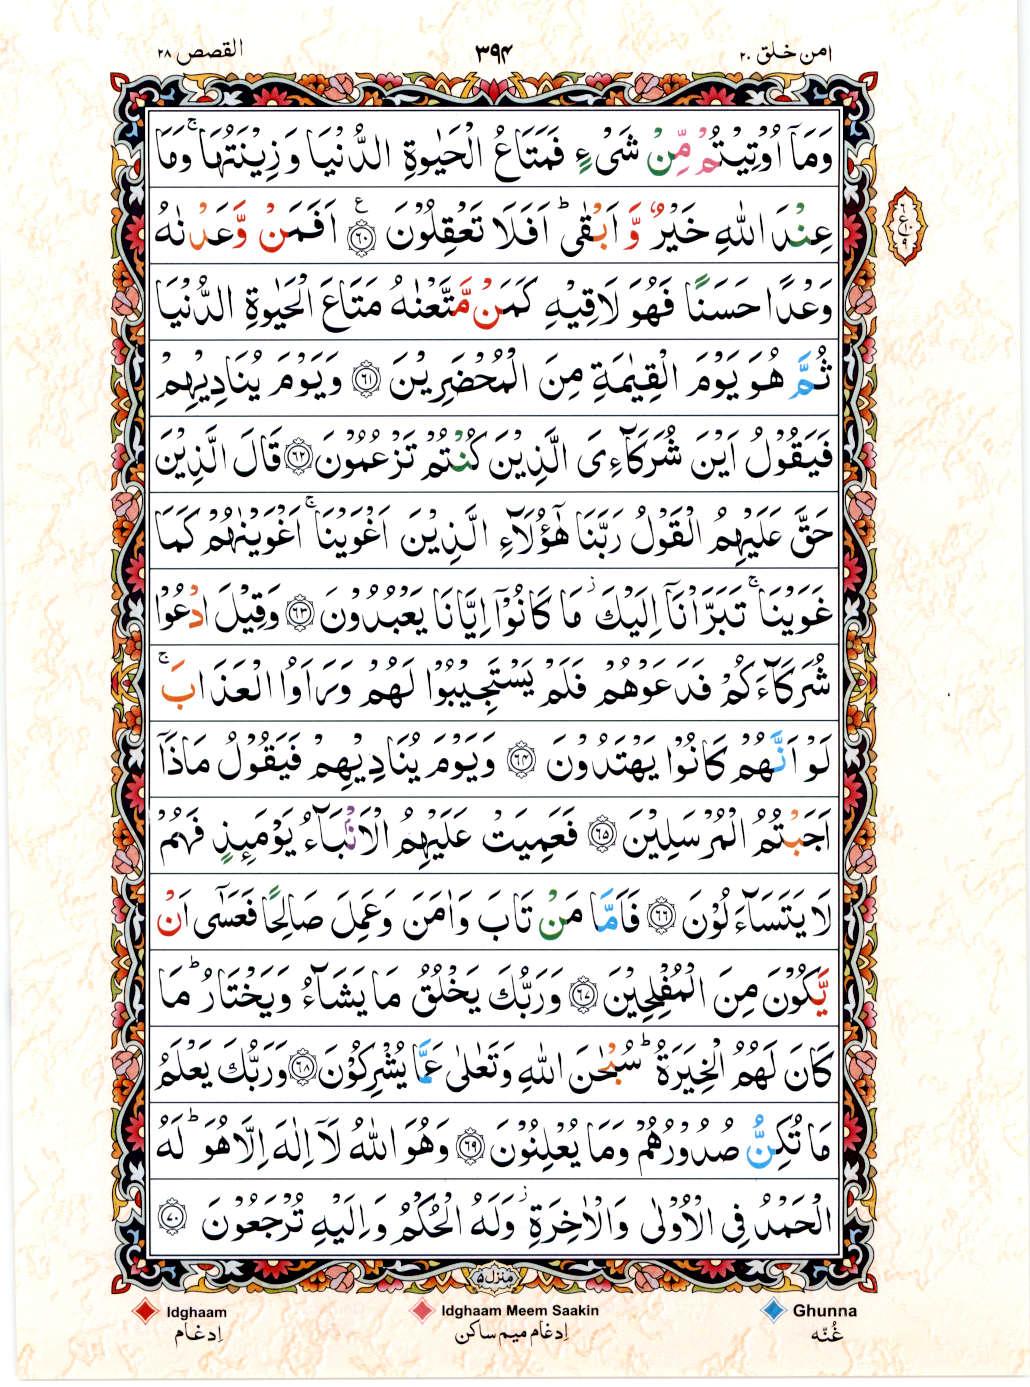 امن خلق ۲۰
۳۹۴
القصص ۲۸
وَمَاۤ اُوْتِيْتُمْ مِّنْ شَىْءٍ فَمَتَاعُ الْحَيٰوةِ الدُّنْيَا وَزِيْنَتُهَا ۚ وَمَا
عِنْدَ اللّٰهِ خَيْرٌ وَّاَبْقٰى ؕ اَفَلَا تَعْقِلُوْنَ ﴿۶۰﴾ ع اَفَمَنْ وَّعَدْنٰهُ
وَعْدًا حَسَنًا فَهُوَ لَاقِيْهِ كَمَنْ مَّتَّعْنٰهُ مَتَاعَ الْحَيٰوةِ الدُّنْيَا
ثُمَّ هُوَ يَوْمَ الْقِيٰمَةِ مِنَ الْمُحْضَرِيْنَ ﴿۶۱﴾ وَيَوْمَ يُنَادِيْهِمْ
فَيَقُوْلُ اَيْنَ شُرَكَآءِىَ الَّذِيْنَ كُنْتُمْ تَزْعُمُوْنَ ﴿۶۲﴾ قَالَ الَّذِيْنَ
حَقَّ عَلَيْهِمُ الْقَوْلُ رَبَّنَا هٰٓؤُلَآءِ الَّذِيْنَ اَغْوَيْنَا ۚ اَغْوَيْنٰهُمْ كَمَا
غَوَيْنَا ۚ تَبَرَّاْنَاۤ اِلَيْكَ ؗ مَا كَانُوْۤا اِيَّانَا يَعْبُدُوْنَ ﴿۶۳﴾ وَقِيْلَ ادْعُوْا
شُرَكَآءَكُمْ فَدَعَوْهُمْ فَلَمْ يَسْتَجِيْبُوْا لَهُمْ وَرَاَوُا الْعَذَابَ ۚ
لَوْ اَنَّهُمْ كَانُوْا يَهْتَدُوْنَ ﴿۶۴﴾ وَيَوْمَ يُنَادِيْهِمْ فَيَقُوْلُ مَاذَاۤ
اَجَبْتُمُ الْمُرْسَلِيْنَ ﴿۶۵﴾ فَعَمِيَتْ عَلَيْهِمُ الْاَنْۢبَآءُ يَوْمَئِذٍ فَهُمْ
لَا يَتَسَآءَلُوْنَ ﴿۶۶﴾ فَاَمَّا مَنْ تَابَ وَاٰمَنَ وَعَمِلَ صَالِحًا فَعَسٰۤى اَنْ
يَّكُوْنَ مِنَ الْمُفْلِحِيْنَ ﴿۶۷﴾ وَرَبُّكَ يَخْلُقُ مَا يَشَآءُ وَيَخْتَارُ ؕ مَا
كَانَ لَهُمُ الْخِيَرَةُ ؕ سُبْحٰنَ اللّٰهِ وَتَعٰلٰى عَمَّا يُشْرِكُوْنَ ﴿۶۸﴾ وَرَبُّكَ يَعْلَمُ
مَا تُكِنُّ صُدُوْرُهُمْ وَمَا يُعْلِنُوْنَ ﴿۶۹﴾ وَهُوَ اللّٰهُ لَاۤ اِلٰهَ اِلَّا هُوَ ؕ لَهُ
الْحَمْدُ فِى الْاُوْلٰى وَالْاٰخِرَةِ ؗ وَلَهُ الْحُكْمُ وَاِلَيْهِ تُرْجَعُوْنَ ﴿۷۰﴾
منزل ۵
Idghaam Idghaam Meem Saakin Ghunna
اِدغام اِدغام میم ساکن غُنّه